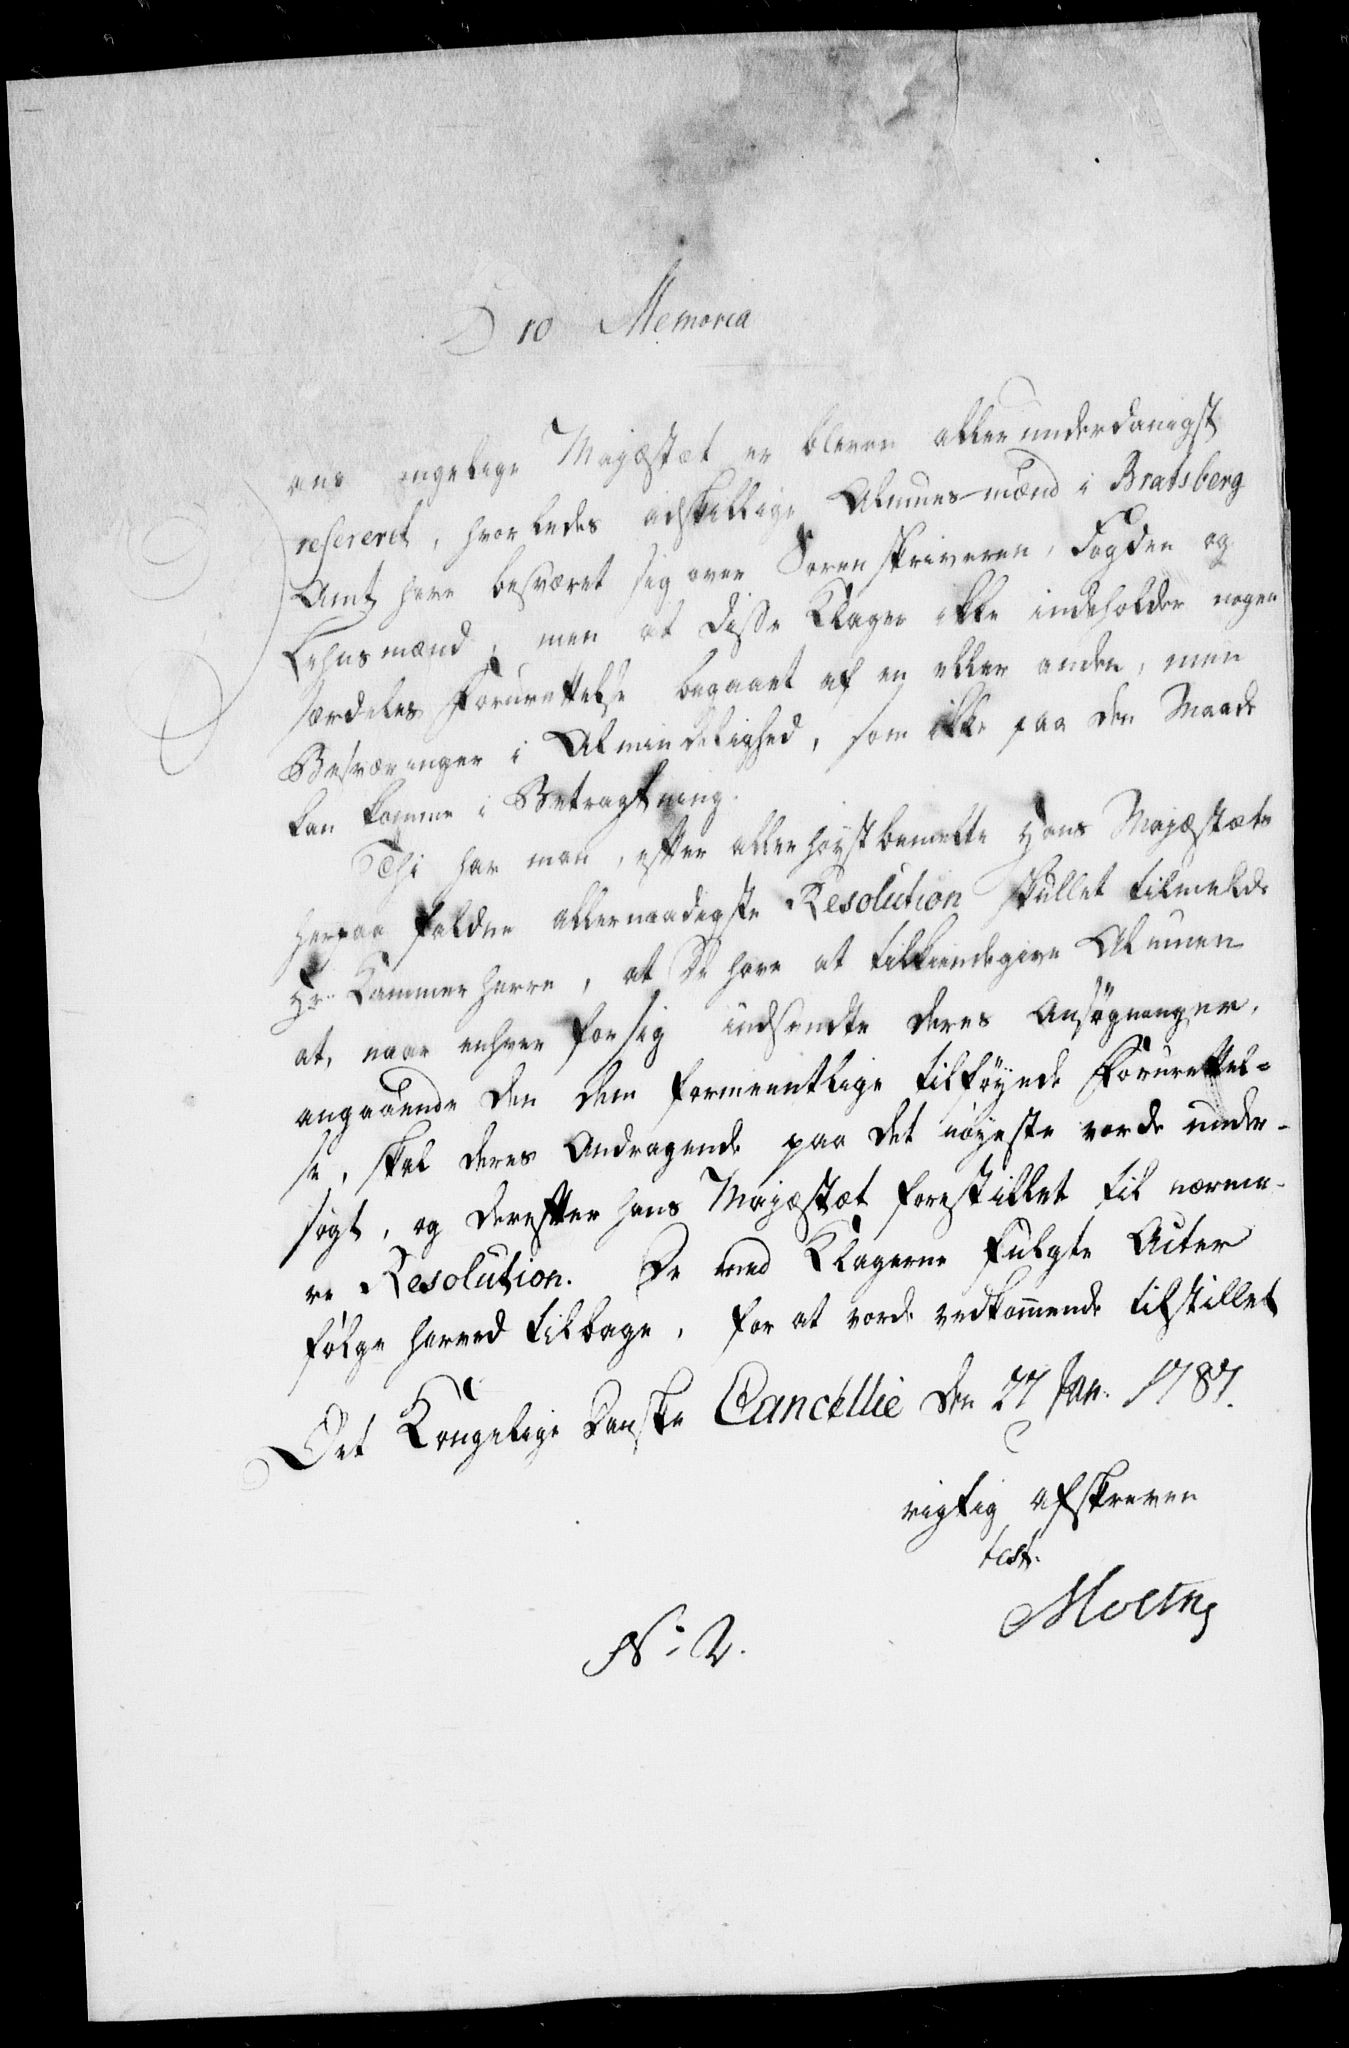 Pro Memoria
Hans Kongelige Majestæt er bleven allerunderdanigst
refereret, hvorledes adskillige Almues-mænd i Bratsberg
Amt have besværet sig over Sorenskriveren, Fogden og
Lehnsmænd, men at disse Klager ikke indeholder nogen
særdeles Forurettelse begaaet af en eller anden, men
Besværinger i Almindelighed, som ikke paa den Maade
kan komme i Betragtning.
Thi har man, efter allerhøystbemelte Hans Majestæts
herpaa faldne allernaadigste Resolution skullet tilmelde
Hr. Kammerherre, at De have at tilkiendegive Almuen
at, naar enhver for sig indsendte deres Ansøgninger,
angaaende den dem formeentlige tilføyede Forurettel-
se, skal deres Andragende paa det nøyeste vorde under-
søgt, og derefter hans Majestæt forestillet til nærme-
re Resolution. De med Klagerne fulgte Acter
følge herved tilbage, for at vorde vedkommende tilstillet
Det Kongelige Danske Cancellie den 27 Jan. 1787.
rigtig afskreven
test.
Moltke
No 2.